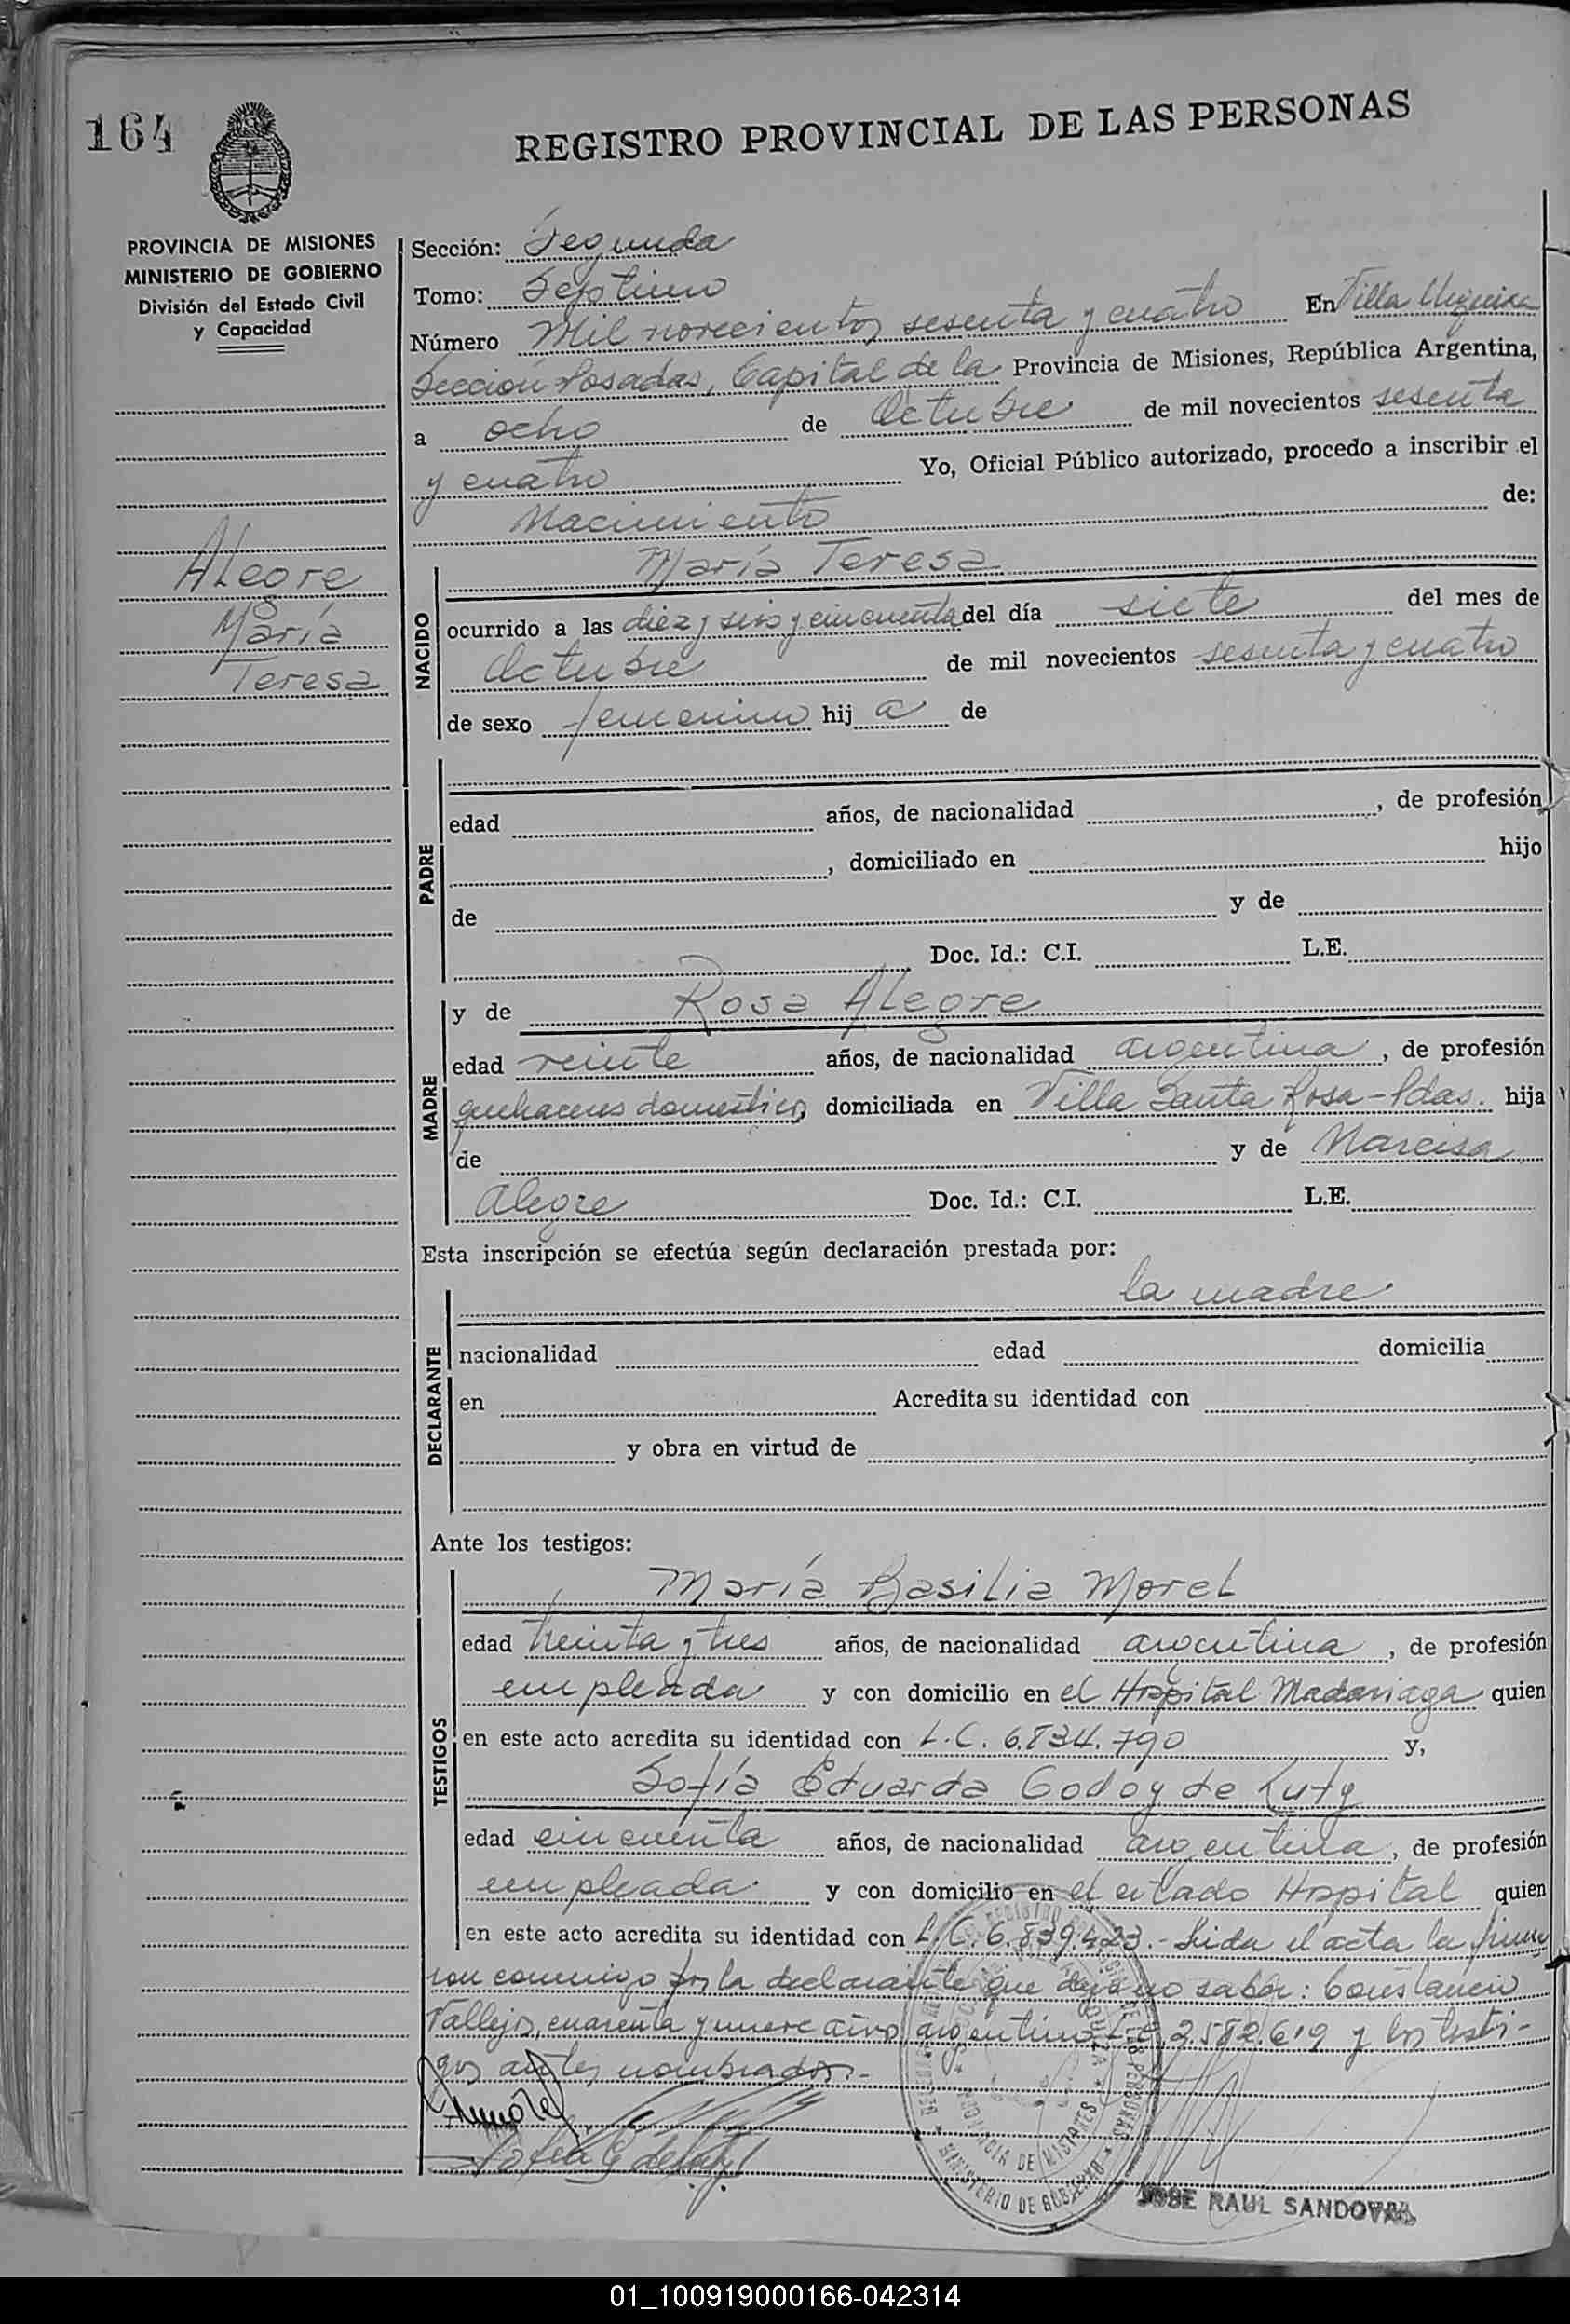 164
REGISTRO PROVINCIAL DE LAS PERSONAS
PROVINCIA DE MISIONES
MINISTERIO DE GOBIERNO
División del Estado Civil
y Capacidad
Alegre
María
Teresa
Sección: Segunda
Tomo: Septimo
Número Mil novecientos sesenta y cuatro En Villa Urquiza
Sección Posadas, Capital de la Provincia de Misiones, República Argentina,
a ocho de Octubre de mil novecientos sesenta
y cuatro Yo, Oficial Público autorizado, procedo a inscribir el
Nacimiento de:
NACIDO
María Teresa
ocurrido a las diez y seis y cincuenta del día siete del mes de
Octubre de mil novecientos sesenta y cuatro
de sexo femenino hij a de
PADRE
edad años, de nacionalidad , de profesión
, domiciliado en hijo
de y de
Doc. Id.: C.I. L.E.
MADRE
y de Rosa Alegre
edad veinte años, de nacionalidad argentina , de profesión
quehaceres domésticos domiciliada en Villa Santa Rosa - Pdas. hija
de y de Narcisa
Alegre Doc. Id.: C.I. L.E.
Esta inscripción se efectúa según declaración prestada por:
DECLARANTE
la madre
nacionalidad edad domicilia
en Acredita su identidad con
y obra en virtud de
Ante los testigos:
TESTIGOS
María Basilia Morel
edad treinta y tres años, de nacionalidad argentina , de profesión
empleada y con domicilio en el Hospital Madariaga quien
en este acto acredita su identidad con L.C. 6.834.790 y,
Sofía Eduarda Godoy de Luty
edad cincuenta años, de nacionalidad argentina , de profesión
empleada y con domicilio en el citado Hospital quien
en este acto acredita su identidad con L.C. 6.839.423.- Leida el acta la firma
ron conmigo por la declarante que dijo no saber: Constancio
Vallejos, cuarenta y nueve años argentino 2.582.619 y los testi-
gos antes nombrados.-
Sofia G de Luty
MINISTERIO DE GOBIERNO
PROVINCIA DE MISIONES
JOSE RAUL SANDOVAL
01_100919000166-042314